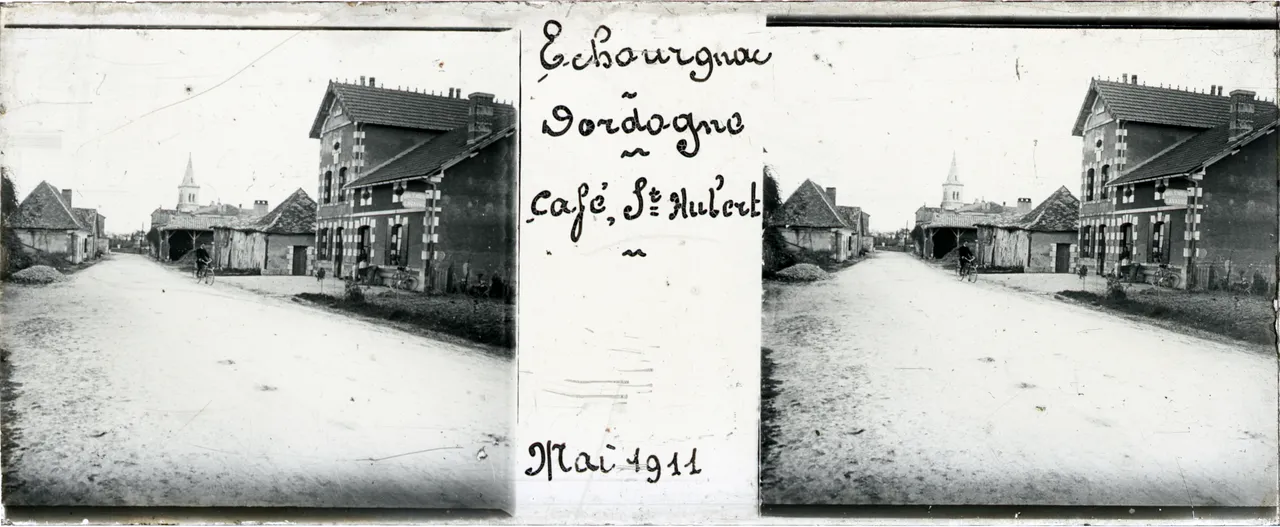 Echourgnac
Dordogne
Café, St Hubert
Mai 1911